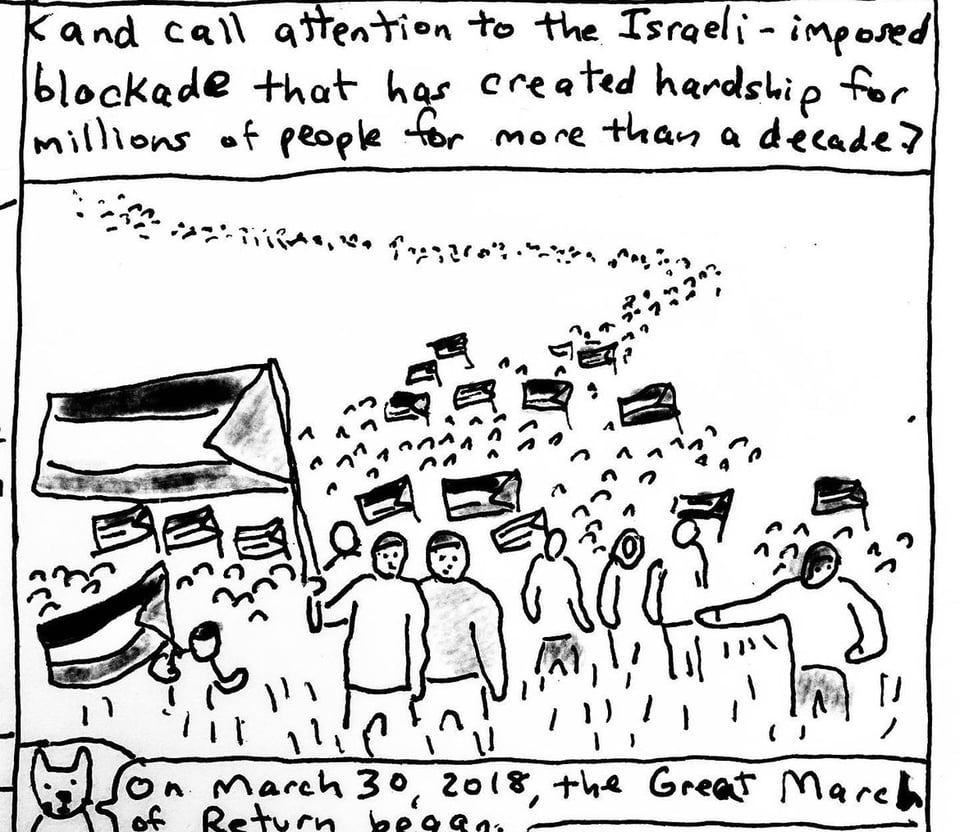 and call attention to the Israeli-imposed
blockade that has created hardship for
millions of people for more than a decade?
On March 30, 2018, the Great March
of Return began.